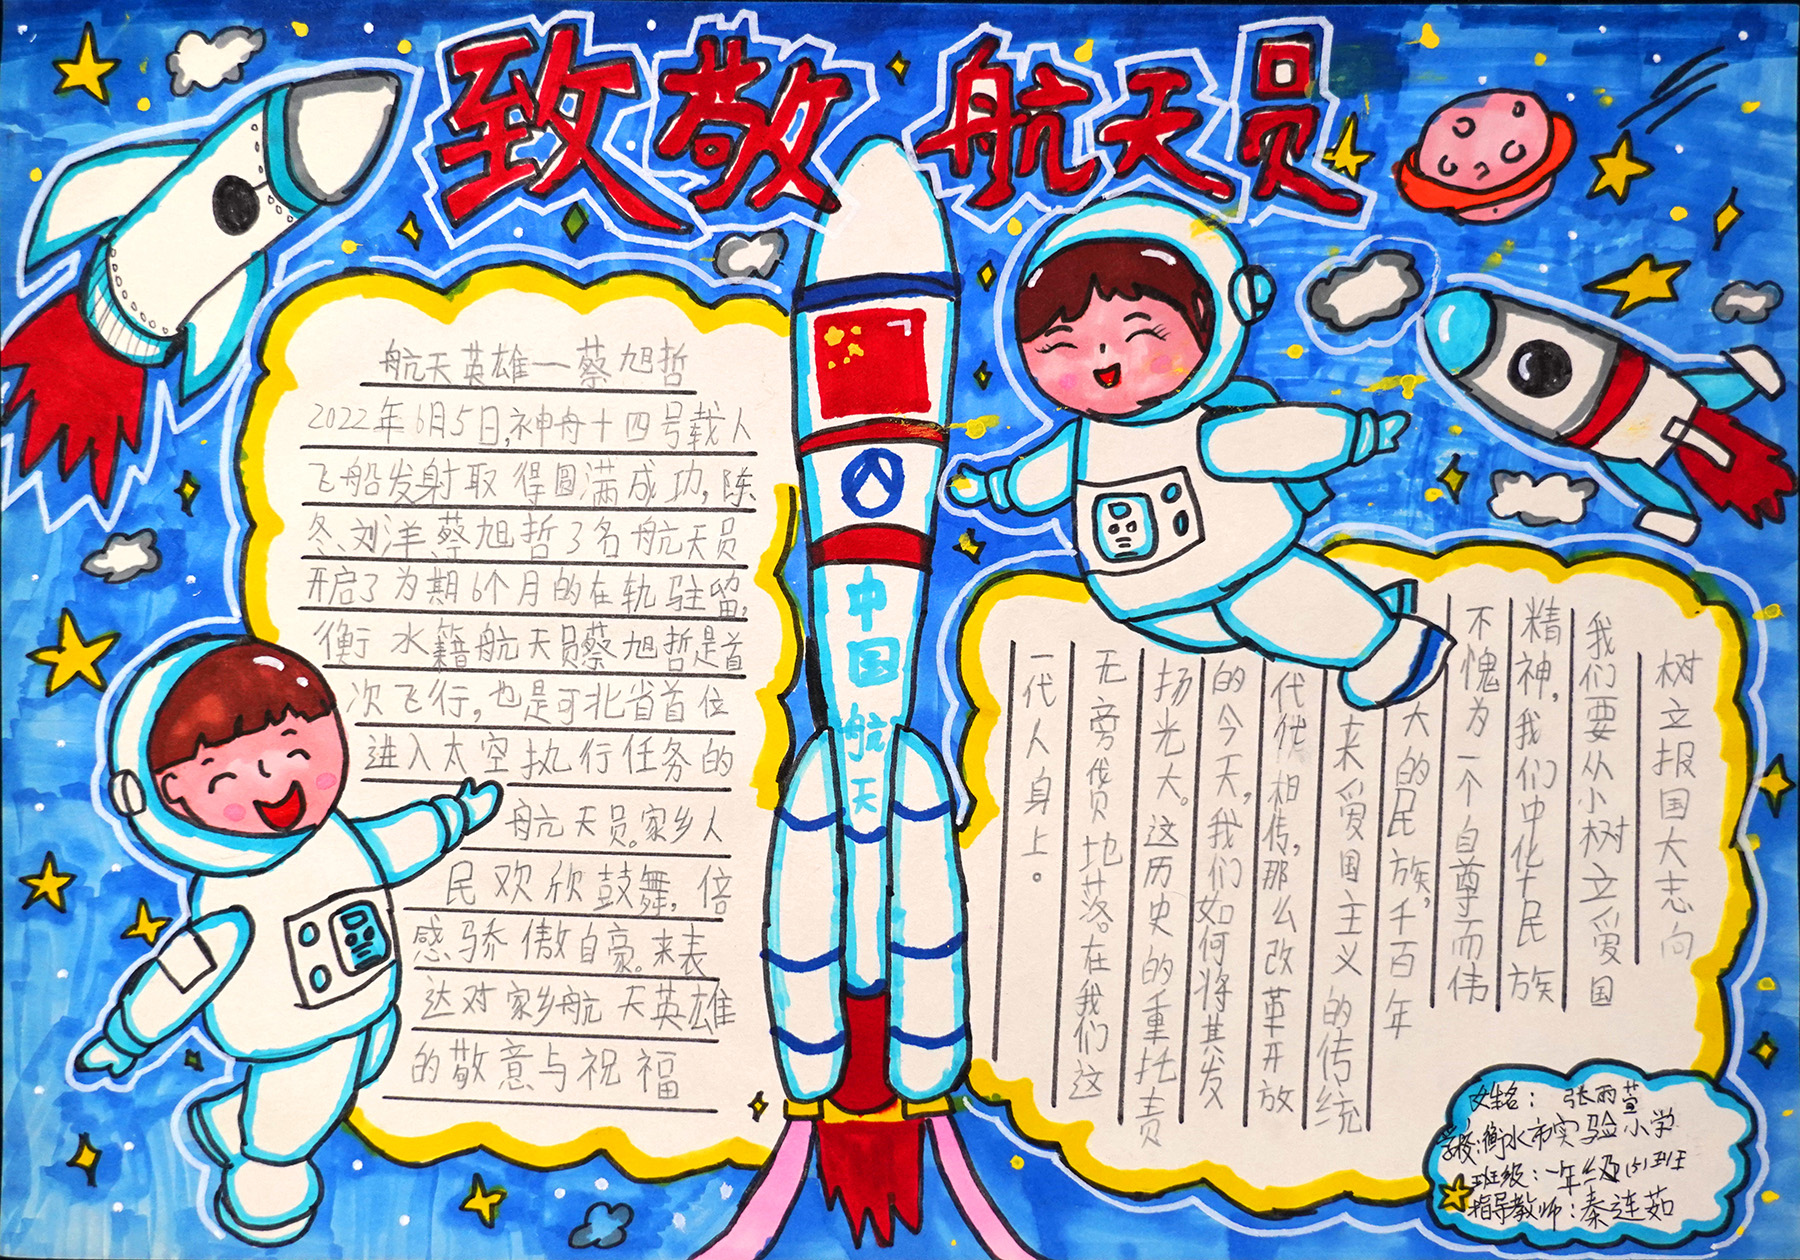 致敬 航天员
航天英雄一蔡旭哲
2022年6月5日,神舟十四号载人
飞船发射取得圆满成功,陈
冬、刘洋、蔡旭哲3名航天员
开启了为期6个月的在轨驻留,
衡水籍航天员蔡旭哲是首
次飞行,也是河北省首位
进入太空执行任务的
航天员。家乡人
民欢欣鼓舞,倍
感骄傲自豪。来表
达对家乡航天英雄
的敬意与祝福
中国航天
树立报国大志向
我们要从小树立爱国
精神,我们中化十民族
不愧为一个自尊而伟
大的民族,千百年
来爱国主义的传统
代代相传,那么改革开放
的今天,我们如何将其发
扬光大。这历史的重托责
无旁贷地落。在我们这
一代人身上。
姓名:张雨萱
学校:衡水市实验小学
班级:一年级(5)班
指导教师:秦连茹